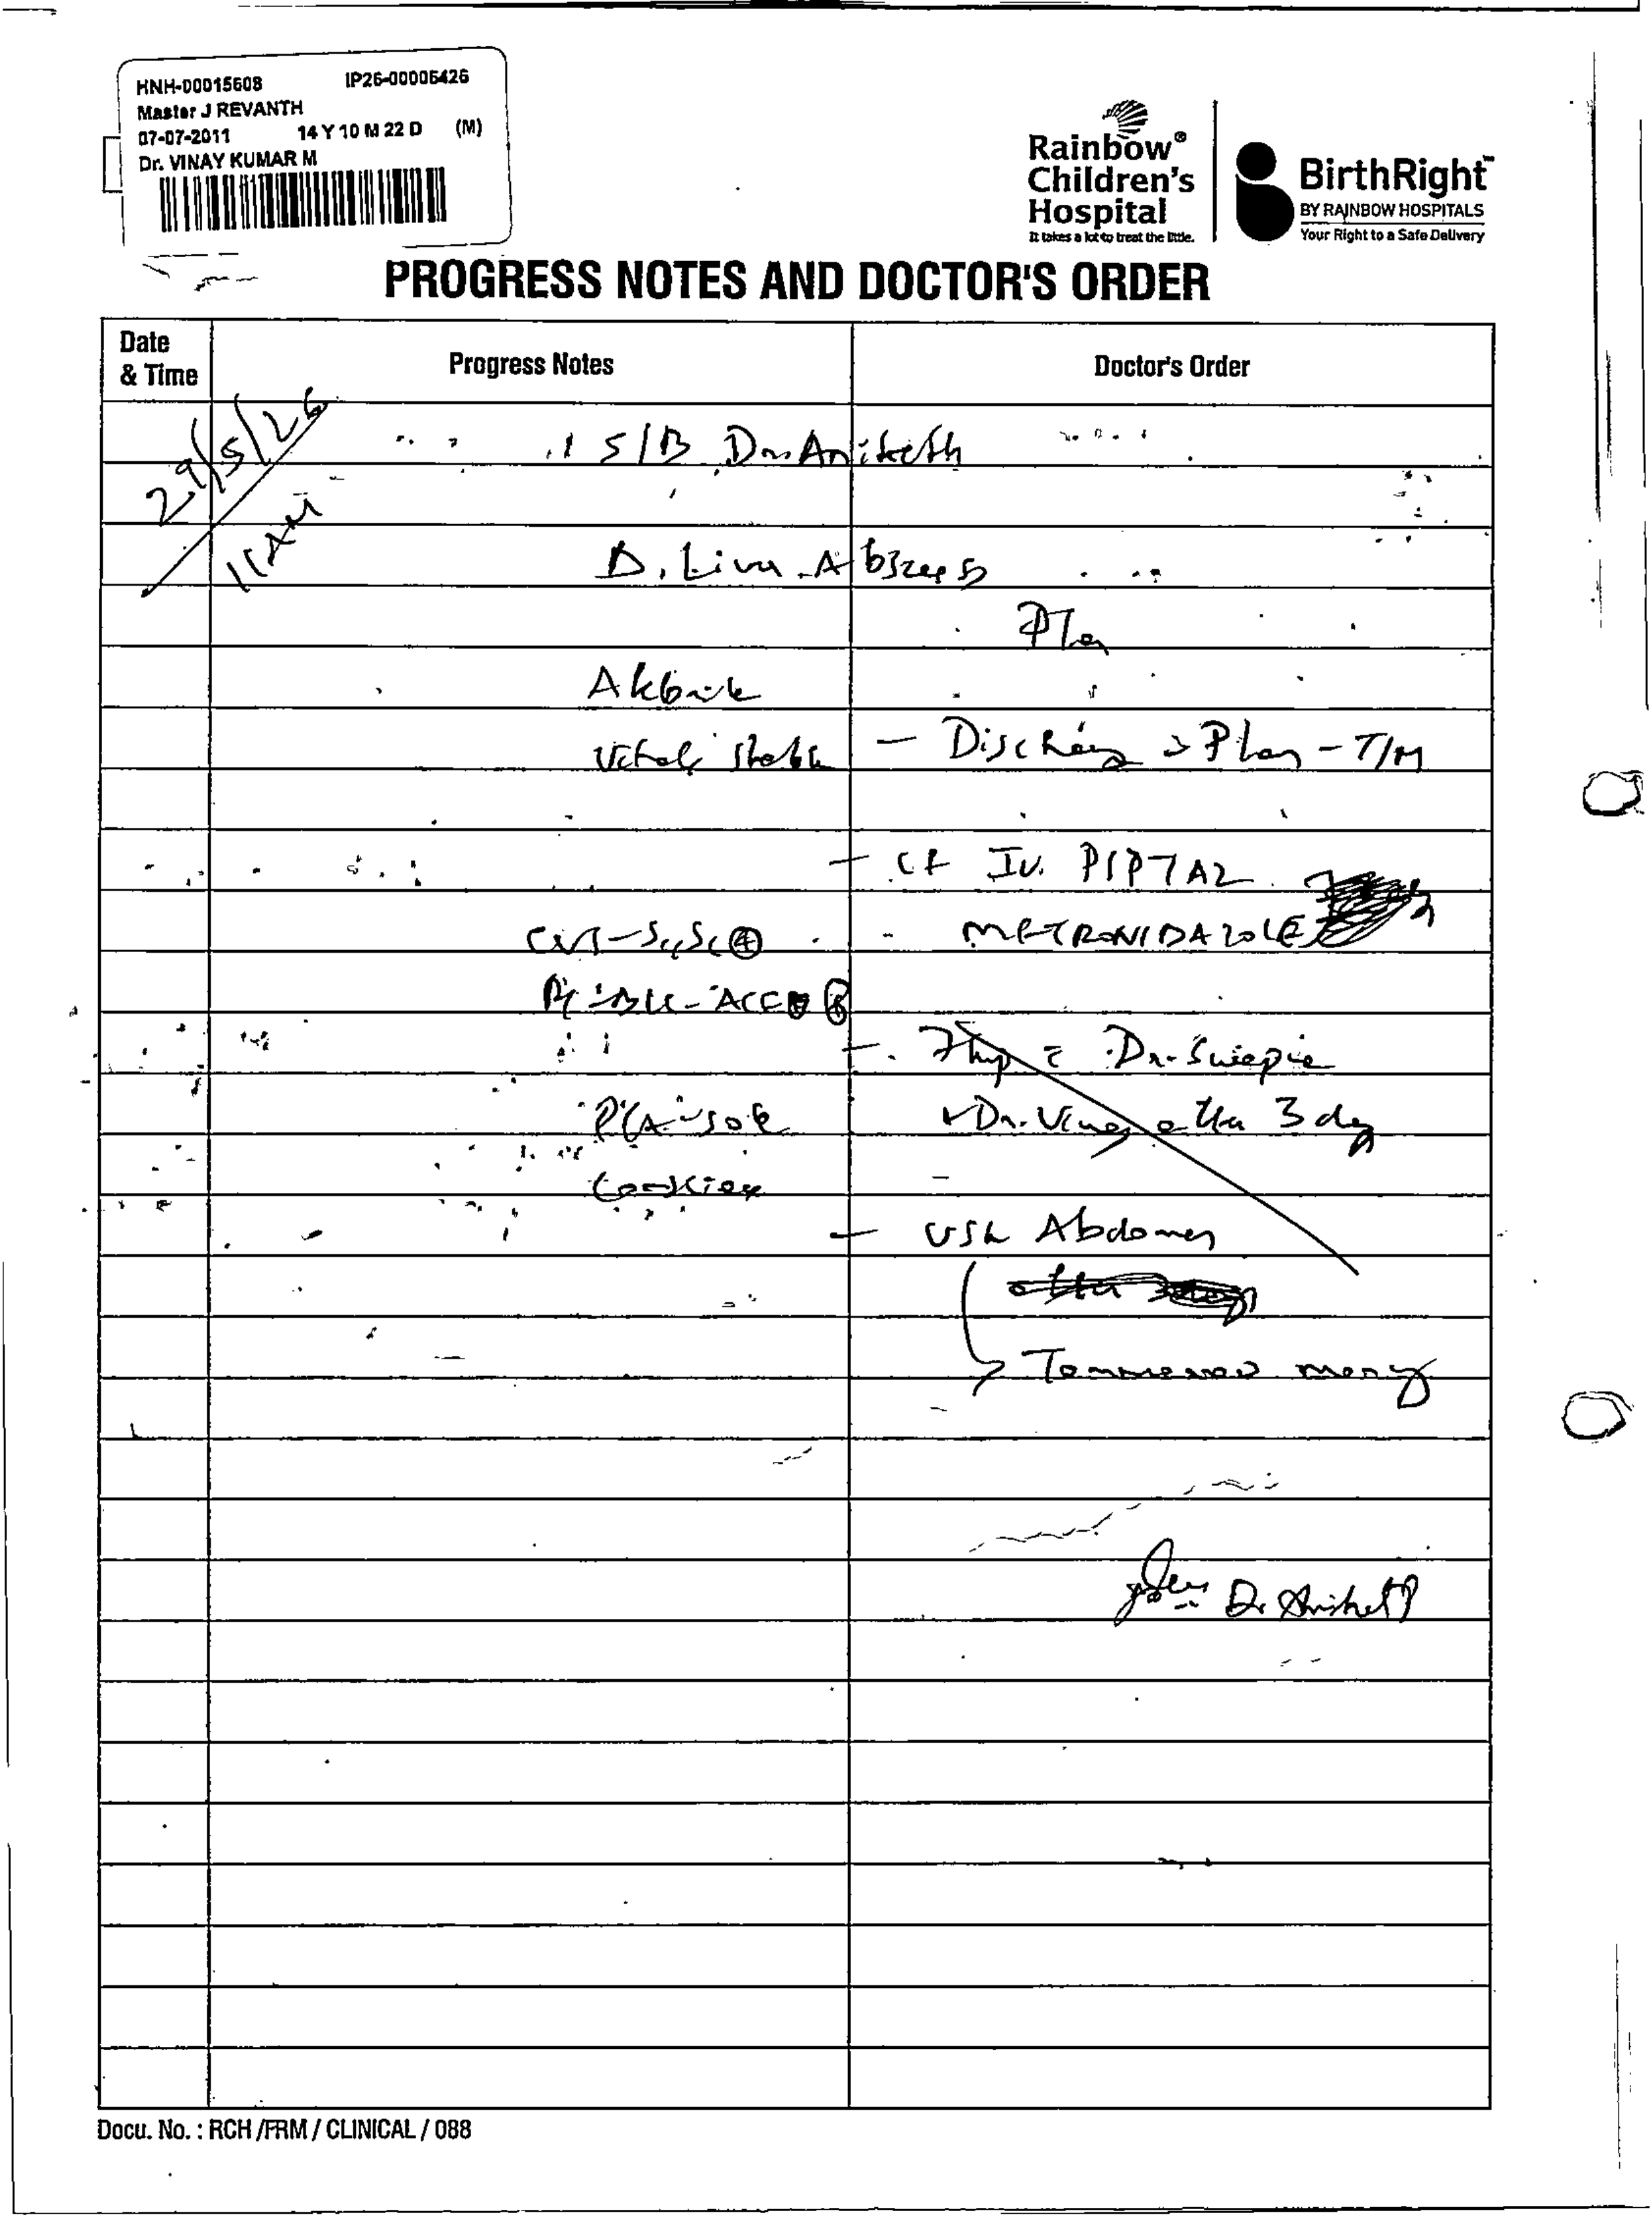 HNH-00015608 IP26-00005426
Master J REVANTH
07-07-2011 14 Y 10 M 22 D (M)
Dr. VINAY KUMAR M
Rainbow®
Children's
Hospital
It takes a lot to treat the little.
BirthRight™
BY RAINBOW HOSPITALS
Your Right to a Safe Delivery
PROGRESS NOTES AND DOCTOR'S ORDER
Date
& Time
Progress Notes
Doctor's Order
29/5/26
11 AM
S/B Dr. Aniketh
D. Liver Abscess
Plan
Vitals stable
- Discharge Plan - T/M
- IV. PIPTAZ
- METRONIDAZOLE
CVS - S1S2 ⊕
P/A - soft
Dr.
Dr. Vinay after 3 day
- USG Abdomen
after
Tommorow morning
Dr Aniketh
Docu. No. : RCH /FRM / CLINICAL / 088